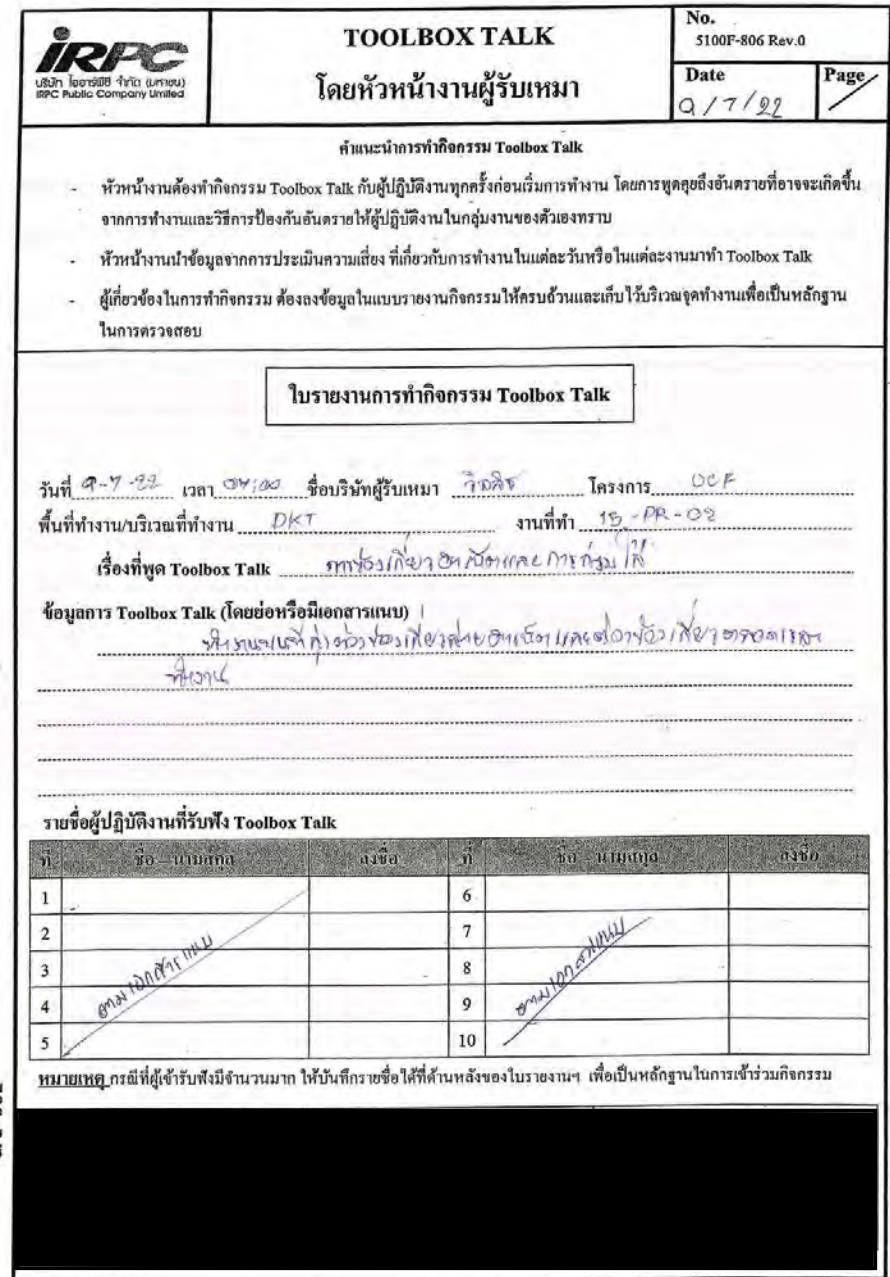 IRPC
บริษัท ไออาร์พีซี จำกัด (มหาชน)
IRPC Public Company Limited
TOOLBOX TALK
โดยหัวหน้างานผู้รับเหมา
No.
5100F-806 Rev.0
Date
9/7/22
Page
คำแนะนำการทำกิจกรรม Toolbox Talk
- หัวหน้างานต้องทำกิจกรรม Toolbox Talk กับผู้ปฏิบัติงานทุกครั้งก่อนเริ่มการทำงาน โดยการพูดคุยถึงอันตรายที่อาจจะเกิดขึ้น
จากการทำงานและวิธีการป้องกันอันตรายให้ผู้ปฏิบัติงานในกลุ่มงานของตัวเองทราบ
- หัวหน้างานนำข้อมูลจากการประเมินความเสี่ยง ที่เกี่ยวกับการทำงานในแต่ละวันหรือในแต่ละงานมาทำ Toolbox Talk
- ผู้เกี่ยวข้องในการทำกิจกรรม ต้องลงข้อมูลในแบบรายงานกิจกรรมให้ครบถ้วนและเก็บไว้บริเวณจุดทำงานเพื่อเป็นหลักฐาน
ในการตรวจสอบ
ใบรายงานการทำกิจกรรม Toolbox Talk
วันที่ 9-7-22 เวลา 07:00 ชื่อบริษัทผู้รับเหมา โครงการ UCF
พื้นที่ทำงาน/บริเวณที่ทำงาน DKT งานที่ทำ 15-PR-02
เรื่องที่พูด Toolbox Talk
ข้อมูลการ Toolbox Talk (โดยย่อหรือมีเอกสารแนบ)
ทำงาน
รายชื่อผู้ปฏิบัติงานที่รับฟัง Toolbox Talk
ที่ ชื่อ – นามสกุล ลงชื่อ ที่ ชื่อ – นามสกุล ลงชื่อ
1 6
2 7
3 ตามเอกสารแนบ 8 ตามเอกสารแนบ
4 9
5 10
หมายเหตุ กรณีที่ผู้เข้ารับฟังมีจำนวนมาก ให้บันทึกรายชื่อได้ที่ด้านหลังของใบรายงานฯ เพื่อเป็นหลักฐานในการเข้าร่วมกิจกรรม